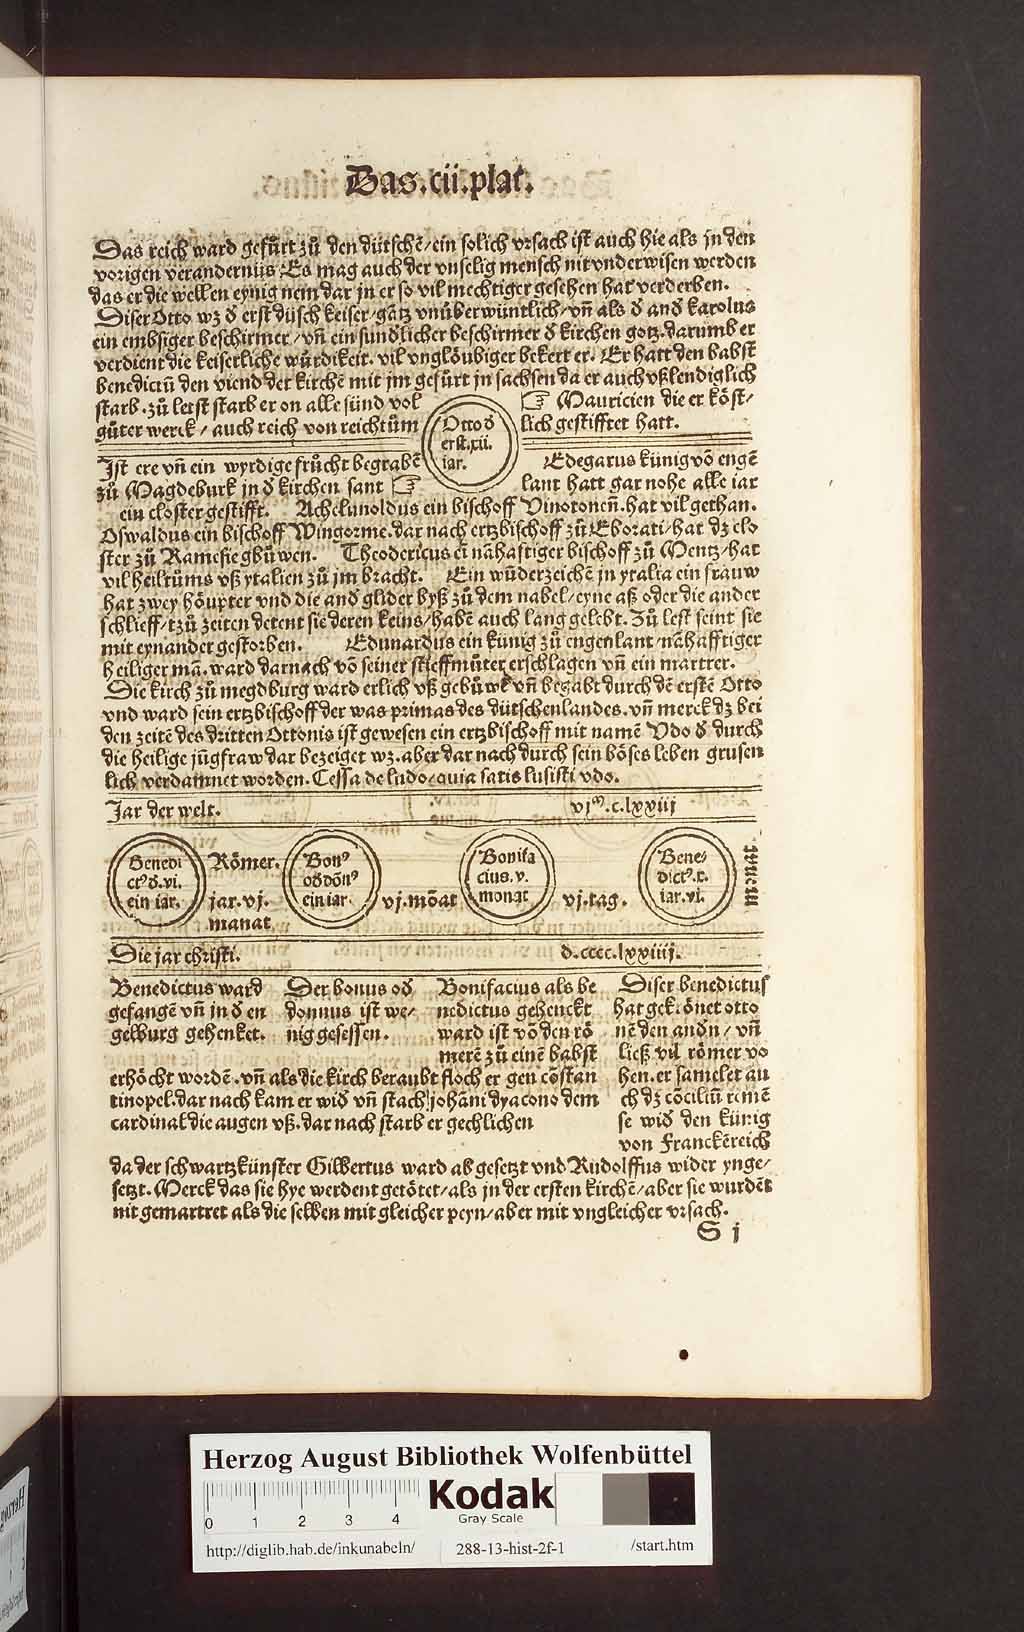 Das.cii.plat.
Das reich ward gefürt zů den dütschē/ein solich vrsach ist auch hie als in den
vorigen verandernüs Es mag auch der vnselig mensch nit vnderwisen werden
das er die wellen eynig nem dar in er so vil mechtiger gesehen hat verderben.
Diser Otto wz d̄ erst düsch keiser/gātz vnüberwüntlich/vn̄ als d̄ and̄ karolus
ein embsiger beschirmer/vn̄ ein sundlicher beschirmer d̄ kirchen gotz.darumb er
verdient die keiserliche würdikeit. vil vnglöubiger bekert er. Er hatt den babst
benedictū den viend der kirchē mit im gefürt in sachsen da er auch vßlendiglich
starb.zů letst starb er on alle sünd vol ☞ Mauricien die er köst/
gůter werck/auch reich von reichtům
Otto d̄
erst.xii.
iar.
lich gestifftet hatt.
Ist ere vn̄ ein wyrdige frůcht begrabē Edegarus künig vō engē
zů Magdeburk in d̄ kirchen sant ☞ lant hatt gar nohe alle iar
ein closter gestifft. Achelunoldus ein bischoff Vinotonen̄.hat vil gethan.
Oswaldus ein bischoff Wingorme.dar nach ertzbischoff zů Eborati/hat dz clo
ster zů Ramesie gbůwen. Theodericus eī nāhaftiger bischoff zů Mentz/hat
vil heiltůms vß ytalien zů im bracht. Ein wūderzeichē in ytalia ein frauw
hat zwey höupter vnd die and̄ glider byß zů dem nabel/eyne aß oder die ander
schlieff/tzů zeiten detent sie deren keins/habē auch lang gelebt. Zů lest seint sie
mit eynander gestorben. Eduuardus ein künig zů engenlant/nāhafftiger
heiliger mā.ward darnach vō seiner stieffmůter erschlagen vn̄ ein martrer.
Die kirch zů megdburg ward erlich vß gebůwt vn̄ begabt durch dē erstē Otto
vnd ward sein ertzbischoff der was primas des dütschenlandes.vn̄ merck dz bei
den zeitē des dritten Ottonis ist gewesen ein ertzbischoff mit namē Vdo d̄ durch
die heilige jūgfraw dar bezeiget wz.aber dar nach durch sein böses leben grusen
lich verdamnet worden.Cessa de ludo/quia satis lusisti vdo.
Jar der welt. vjᵐ.c.lxxiij
Benedi
ctꝰ d̄.vi.
ein iar.
Römer.
jar.vj.
manat
Bonꝰ
od̄ dōnꝰ
ein iar.
vj.mōat
Bonifa
cius.v.
monat
vj.tag.
Bene/
dictꝰ.r.
iar.vi.
Die jar christi. d.cccc.lxxiiij.
Benedictus ward
gefangē vn̄ in d̄ en
gelburg gehenket.
Der bonus od̄
donnus ist we/
nig gesessen.
Bonifacius als be
nedictus gehenckt
ward ist vō den rö
merē zů einē babst
erhöcht wordē.vn̄ als die kirch beraubt floch er gen cōstan
tinopel.dar nach kam er wid̄ vn̄ stach johāni dyacono dem
cardinal die augen vß.dar nach starb er gechlichen
Diser benedictus
hat gekrönet otto
nē den andn̄/vn̄
ließ vil römer vo
hen.er samelet au
ch dz cōciliū remē
se wid̄ den künig
von Franckēreich
da der schwartzkünster Gilbertus ward ab gesetzt vnd Rudolffus wider ynge/
setzt.Merck das sie hye werdent getötet/als in der ersten kirchē/aber sie wurdēt
nit gemartret als die selben mit gleicher peyn/aber mit vngleicher vrsach.
S j
Herzog August Bibliothek Wolfenbüttel
0 1 2 3 4
Kodak
Gray Scale
http://diglib.hab.de/inkunabeln/ 288-13-hist-2f-1 /start.htm